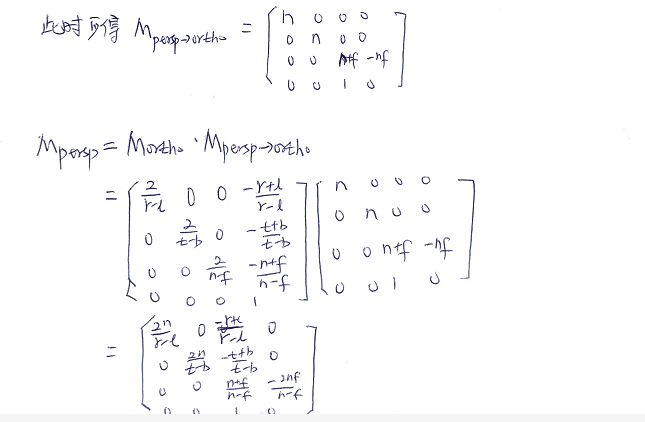 此时可得 Mpersp→ortho = [ n 0 0 0
0 n 0 0
0 0 n+f -nf
0 0 1 0 ]
Mpersp = Mortho · Mpersp→ortho
= [ 2/(r-l) 0 0 -(r+l)/(r-l) ] [ n 0 0 0
0 2/(t-b) 0 -(t+b)/(t-b) 0 n 0 0
0 0 2/(n-f) -(n+f)/(n-f) 0 0 n+f -nf
0 0 0 1 0 0 1 0 ]
= [ 2n/(r-l) 0 -(r+l)/(r-l) 0
0 2n/(t-b) -(t+b)/(t-b) 0
0 0 (n+f)/(n-f) -2nf/(n-f)
0 0 1 0 ]